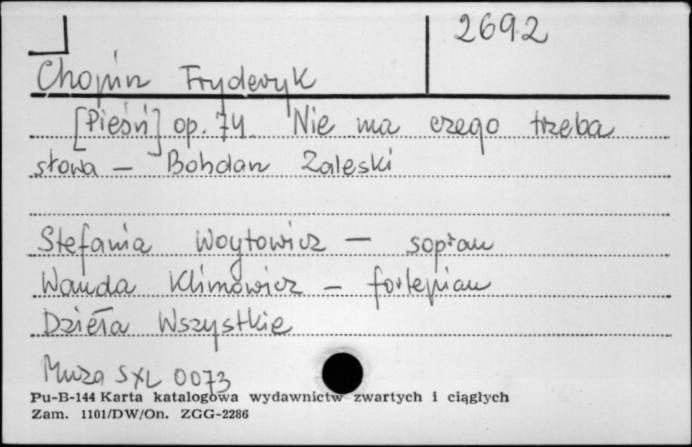 2692
Chopin Fryderyk
[Pieśń] op. 74 Nie ma czego trzeba
słowa – Bohdan Zaleski
Stefania Woytowicz – sopran
Wanda Klimowicz – fortepian
Dzieła Wszystkie
Muza SXL 0073
Pu-B-144 Karta katalogowa wydawnictw zwartych i ciągłych
Zam. 1101/DW/On. ZGG-2286